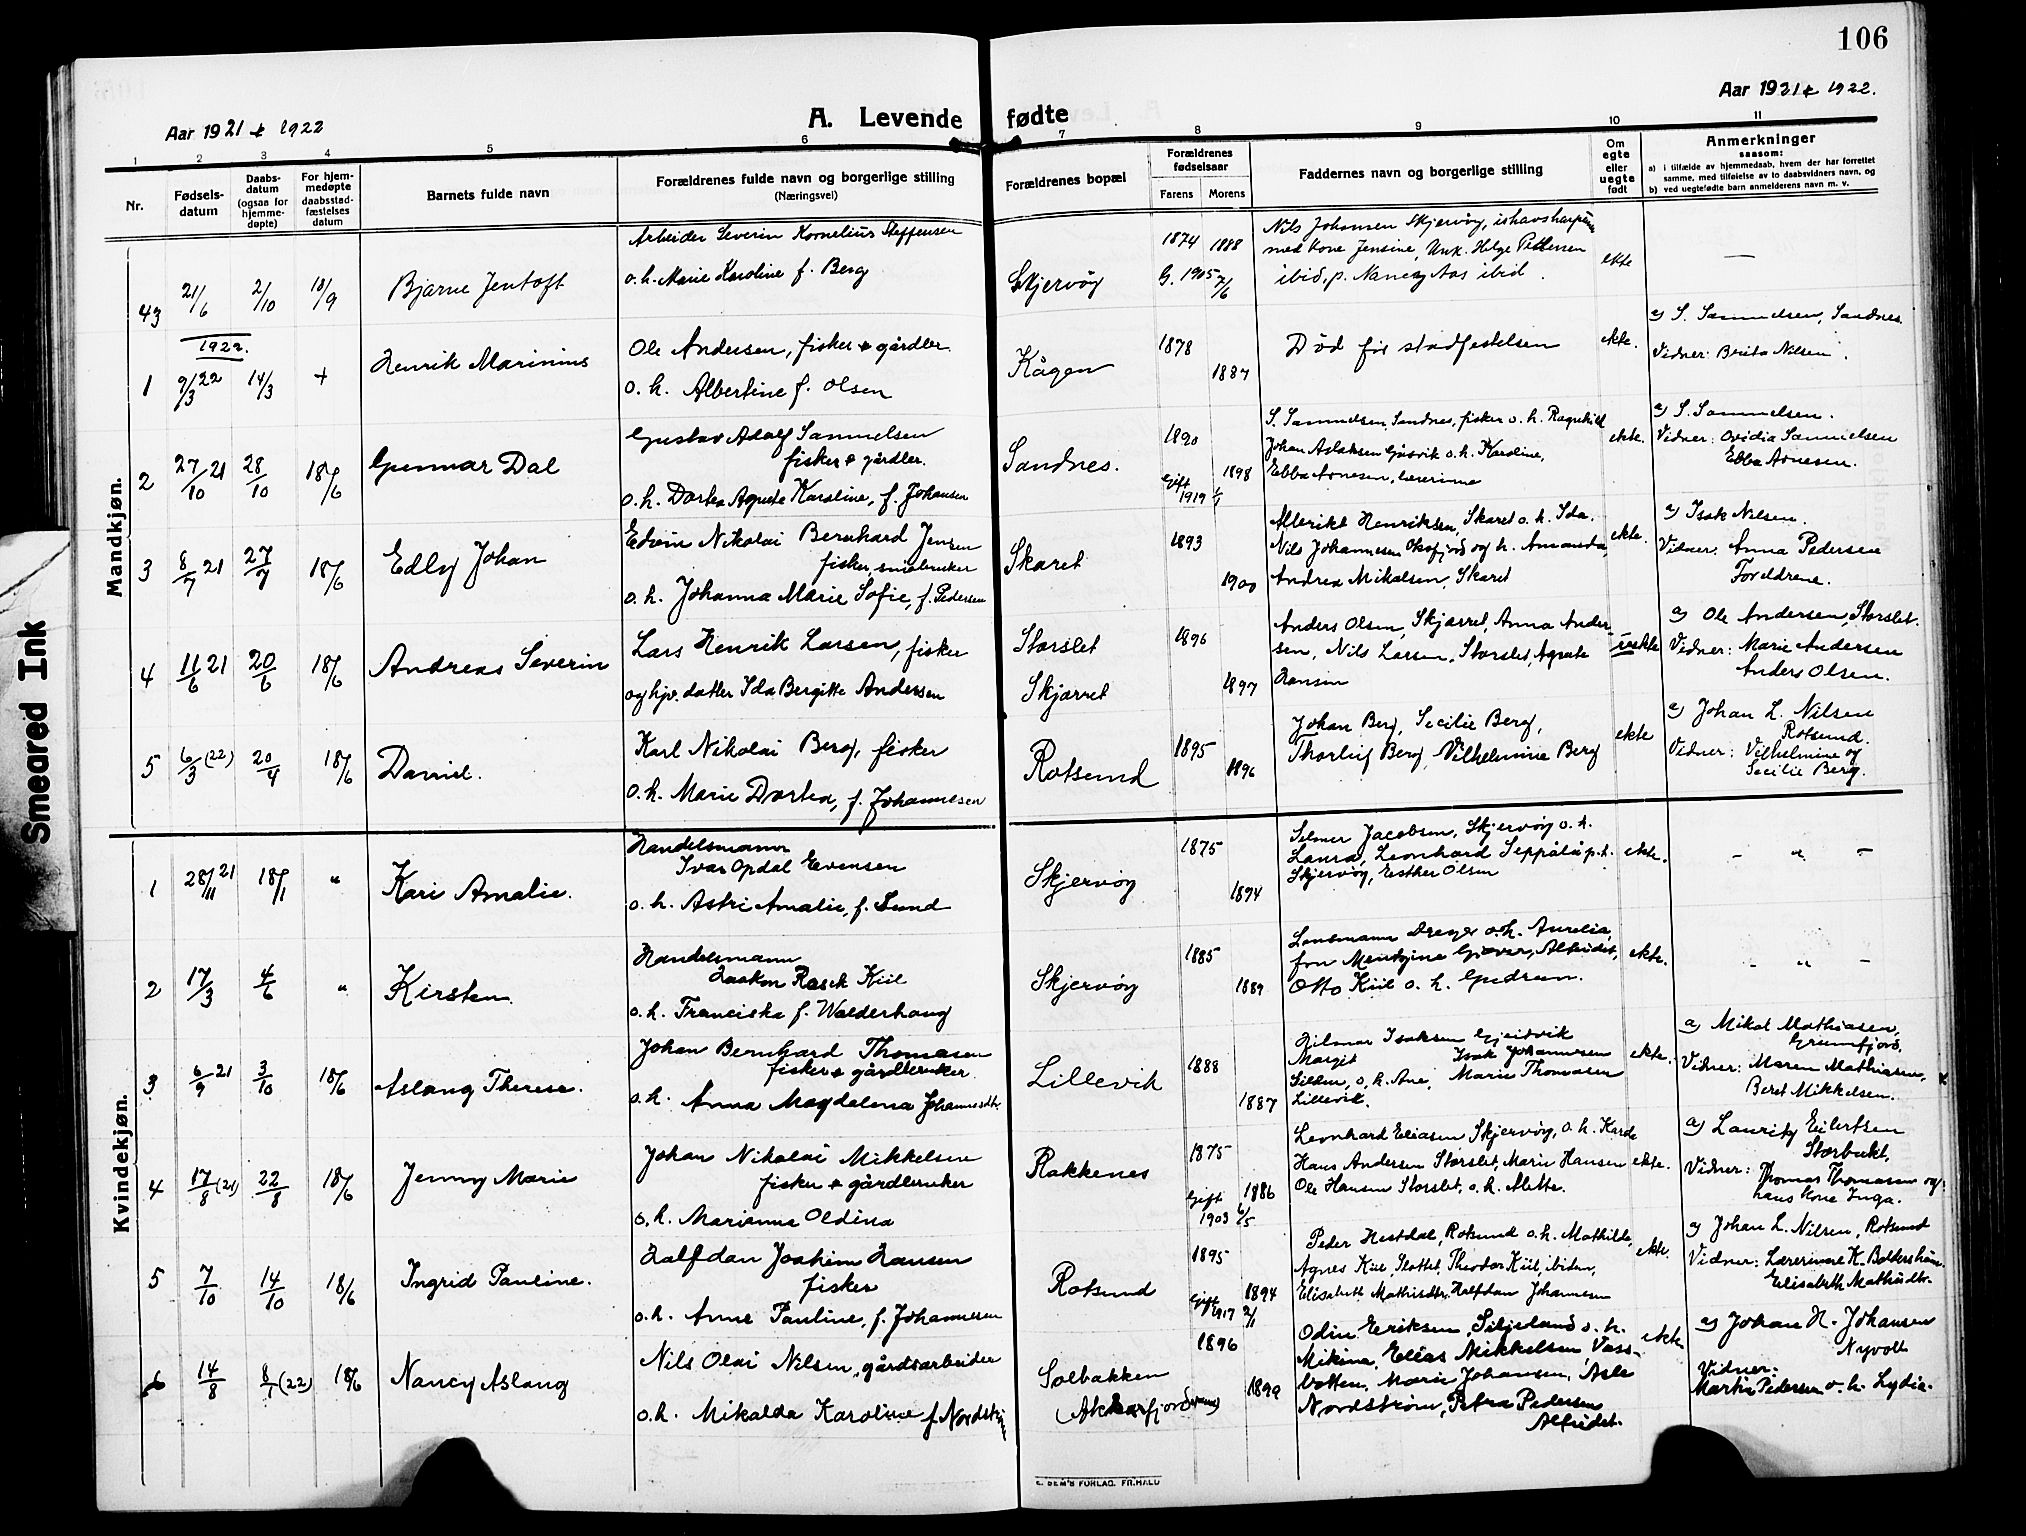 106
Aar 1921 & 1922
A. Levende fødte
Aar 1921 & 1922.
1 2 3 4 5 6 7 8 9 10 11
Nr.
Fødsels-
datum
Daabs-
datum
(ogsaa for
hjemme-
døpte)
For hjem-
medøpte
daabsstad-
fæstelses
datum
Barnets fulde navn
Forældrenes fulde navn og borgerlige stilling
(Næringsvei)
Forældrenes bopæl
Forældrenes
fødselsaar
Farens Morens
Faddernes navn og borgerlige stilling
Om
egte
eller
uegte
født
Anmerkninger
saasom:
a) i tilfælde av hjemmedaab, hvem der har forrettet
samme, med tilføielse av to daabsvidners navn, og
b) ved uegtefødte barn anmelderens navn m. v.
Mandkjøn.
43 21/6 2/10 18/9 Bjarne Jentoft
Arbeider Severin Kornelius Steffensen
o. h. Marie Karoline f. Berg
Skjervøy
1874 1888
G. 1905 7/6
Nils Johansen Skjervøy, ishavsharpun
med kone Jensine, Unk. Helge Pettersen
ibid, p. Nancy Aas ibid.
ekte
—
1922.
1 9/3 22 14/3 + Henrik Marinius
Ole Andersen, fisker & gårdbr.
o. h. Albertine f. Olsen
Kågen
1878
1887
Død før stadfestelsen
ekte.
a) S. Samuelsen, Sandnes.
Vidner: Berita Nilsen.
2 27/10 21 28/10 18/6 Gunnar Dal
Gustav Adolf Samuelsen
fisker & gårdbr.
o. h. Dortea Agnete Karoline, f. Johansen
Sandnes.
1890
1898
Gift
1919
S. Samuelsen, Sandnes, fisker o. h. Ragnhild
Johan Aslaksen Gåsvik o. h. Karoline,
Ebba Arnesen, lærerinne
ekte.
a) S. Samuelsen.
Vidner: Ovidia Samuelsen
Ebba Arnesen.
3 8/7 21 27/7 18/6 Edly Johan
Edvin Nikolai Bernhard Jensen
fisker, småbruker
o. h. Johanna Marie Sofie, f. Pedersen
Skaret
1893
1900
Alberikt Henriksen, Skaret o. h. Ida.
Nils Johannesen Oksfjord og h. Amanda,
Andrea Mikalsen, Skaret
ekte.
a) Isak Nilsen.
Vidner: Anna Pedersen
Foreldrene.
4 11/6 21 20/6 18/6 Andreas Severin
Lars Henrik Larsen, fisker
og hjv. datter Ida Bergitte Andersen
Storslet
Skjærret
1896
1897
Anders Olsen, Skjærret, Anna Ander-
sen, Nils Larsen, Storslet, Agnete
Hansen
uekte
a) Ole Andersen, Storslet.
Vidner: Marie Andersen
Anders Olsen.
5 6/3 (22) 20/4 18/6 Daniel.
Karl Nikolai Berg, fisker
o. h. Marie Dortea, f. Johannesen
Rotsund
1895
1896
Johan Berg, Secilie Berg,
Thorleif Berg, Vilhelmine Berg
ekte
a) Johan L. Nilsen
Rotsund.
Vidner: Vilhelmine og
Secilie Berg.
Kvindekjøn.
1 28/11 21 18/1 " Kari Amalie.
Handelsmann
Ivar Opdal Evensen
o. h. Astri Amalie, f. Lund
Skjervøy
1875
1894
Selmer Jacobsen, Skjervøy o. h.
Laura, Leonhard Seppälä p. t.
Skjervøy, Esther Olsen
ekte.
— " —
2 17/3 4/6 " Kirsten
Handelsmann
Haakon Rasch Kiil
o. h. Franciska f. Walderhaug
Skjervøy
1885
1889
Lensmann Dreyer o. h. Aurelia,
fru Menkjine Giæver, Alteidet,
Otto Kiil o. h. Gudrun.
ekte.
— " —
3 6/9 21 3/10 18/6 Aslaug Therese.
Johan Bernhard Thomasen
fisker & gårdbruker.
o. h. Anna Magdalena Johannesdtr.
Lillevik
1888
1887
Hilmar Isaksen Gjeitvik
Margit Isak Johannesen
Silden, o. h. Ane, Marie Thomasen
Lillevik.
ekte.
a) Mikal Mathiasen,
Grunfjord.
Vidner: Maren Mathiasen,
Beret Mikkelsen.
4 17/8 (21) 22/8 18/6 Jenny Marie
Johan Nikolai Mikkelsen
fisker & gårdbruker
o. h. Marianna Oldina
Rakkenes
1875
1886
Gift
1903 6/5
Leonhard Eliasen Skjervøy, o. h. Karda
Hans Andersen Storslet, Marie Hansen
Ole Hansen Storslet, o. h. Alette.
ekte.
a) Lauritz Eilertsen
Storbukt.
Vidner: Thomas Thomasen og
hans kone Inga.
5 7/10 14/10 18/6 Ingrid Pauline.
Halfdan Joakim Hansen
fisker
o. h. Anne Pauline, f. Johannesen
Rotsund
1895
1894
Gift
1917 2/1
Peder Hestdal, Rotsund o. h. Mathilde,
Agnes Kiil, Slottet, Theodor Kiil, ibidem,
Elisabeth Mathisdtr. Halfdan Johannesen
ekte.
a) Johan L. Nilsen, Rotsund
Vidner: Lærerinne K.
Elisabeth Mathisdtr.
6 14/8 8/1 (22) 18/6 Nancy Aslaug
Nils Olai Nilsen, gårdsarbeider
o. h. Mikalda Karoline f. Nordstrøm
Solbakken
(Akkarfjord)
1896
1899
Odin Eriksen, Siljeland o. h.
Mikina, Elias Mikkelsen Vass-
botten, Marie Johansen, Asle
Nordstrøm, Petra Pedersen
Alteidet.
ekte
a) Johan H. Johansen
Nyvoll
Vidner:
Martin Pedersen o. h. Lydia.
E. SEM'S FORLAG. FR.HALD
Smeared Ink